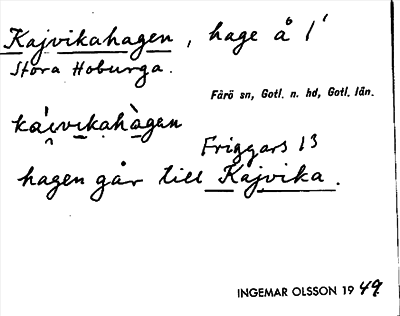 Kajvikahagen, hage å 1/1
Stora Hoburga.
Fårö sn, Gotl. n. hd, Gotl. län.
káivikahàgen
Friggars 13
hagen går till Kajvika.
INGEMAR OLSSON 1949.